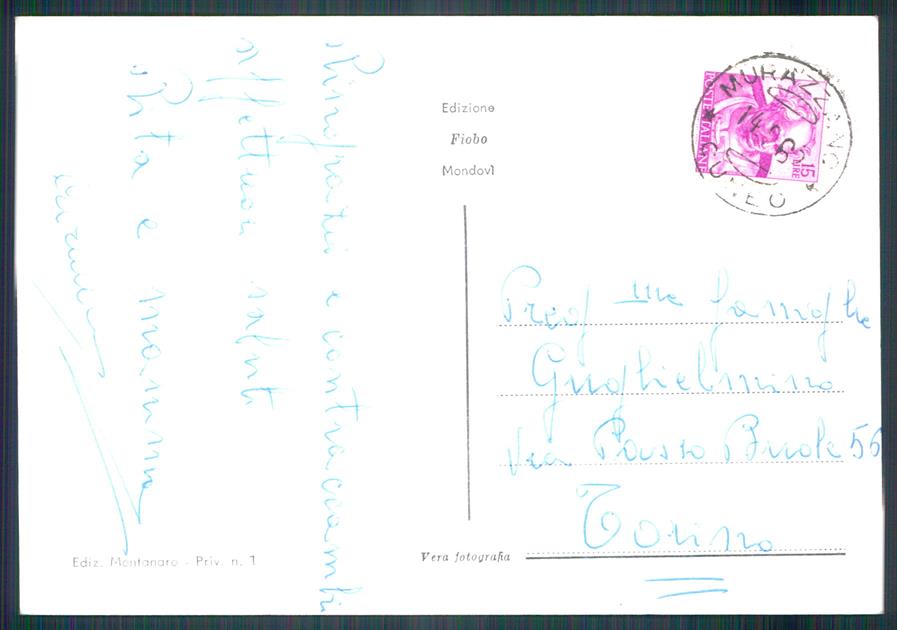 Ringrazio e contraccambi
affettuosi saluti
Rita e mamma
Edizione
Fiobo
Mondovì
MURAZZANO
CUNEO
POSTE ITALIANE
LIRE 15
Preg me Famiglie
Guglielmino
Via Passo Buole 56
Torino
Ediz. Montanaro - Priv. n. 1
Vera fotografia